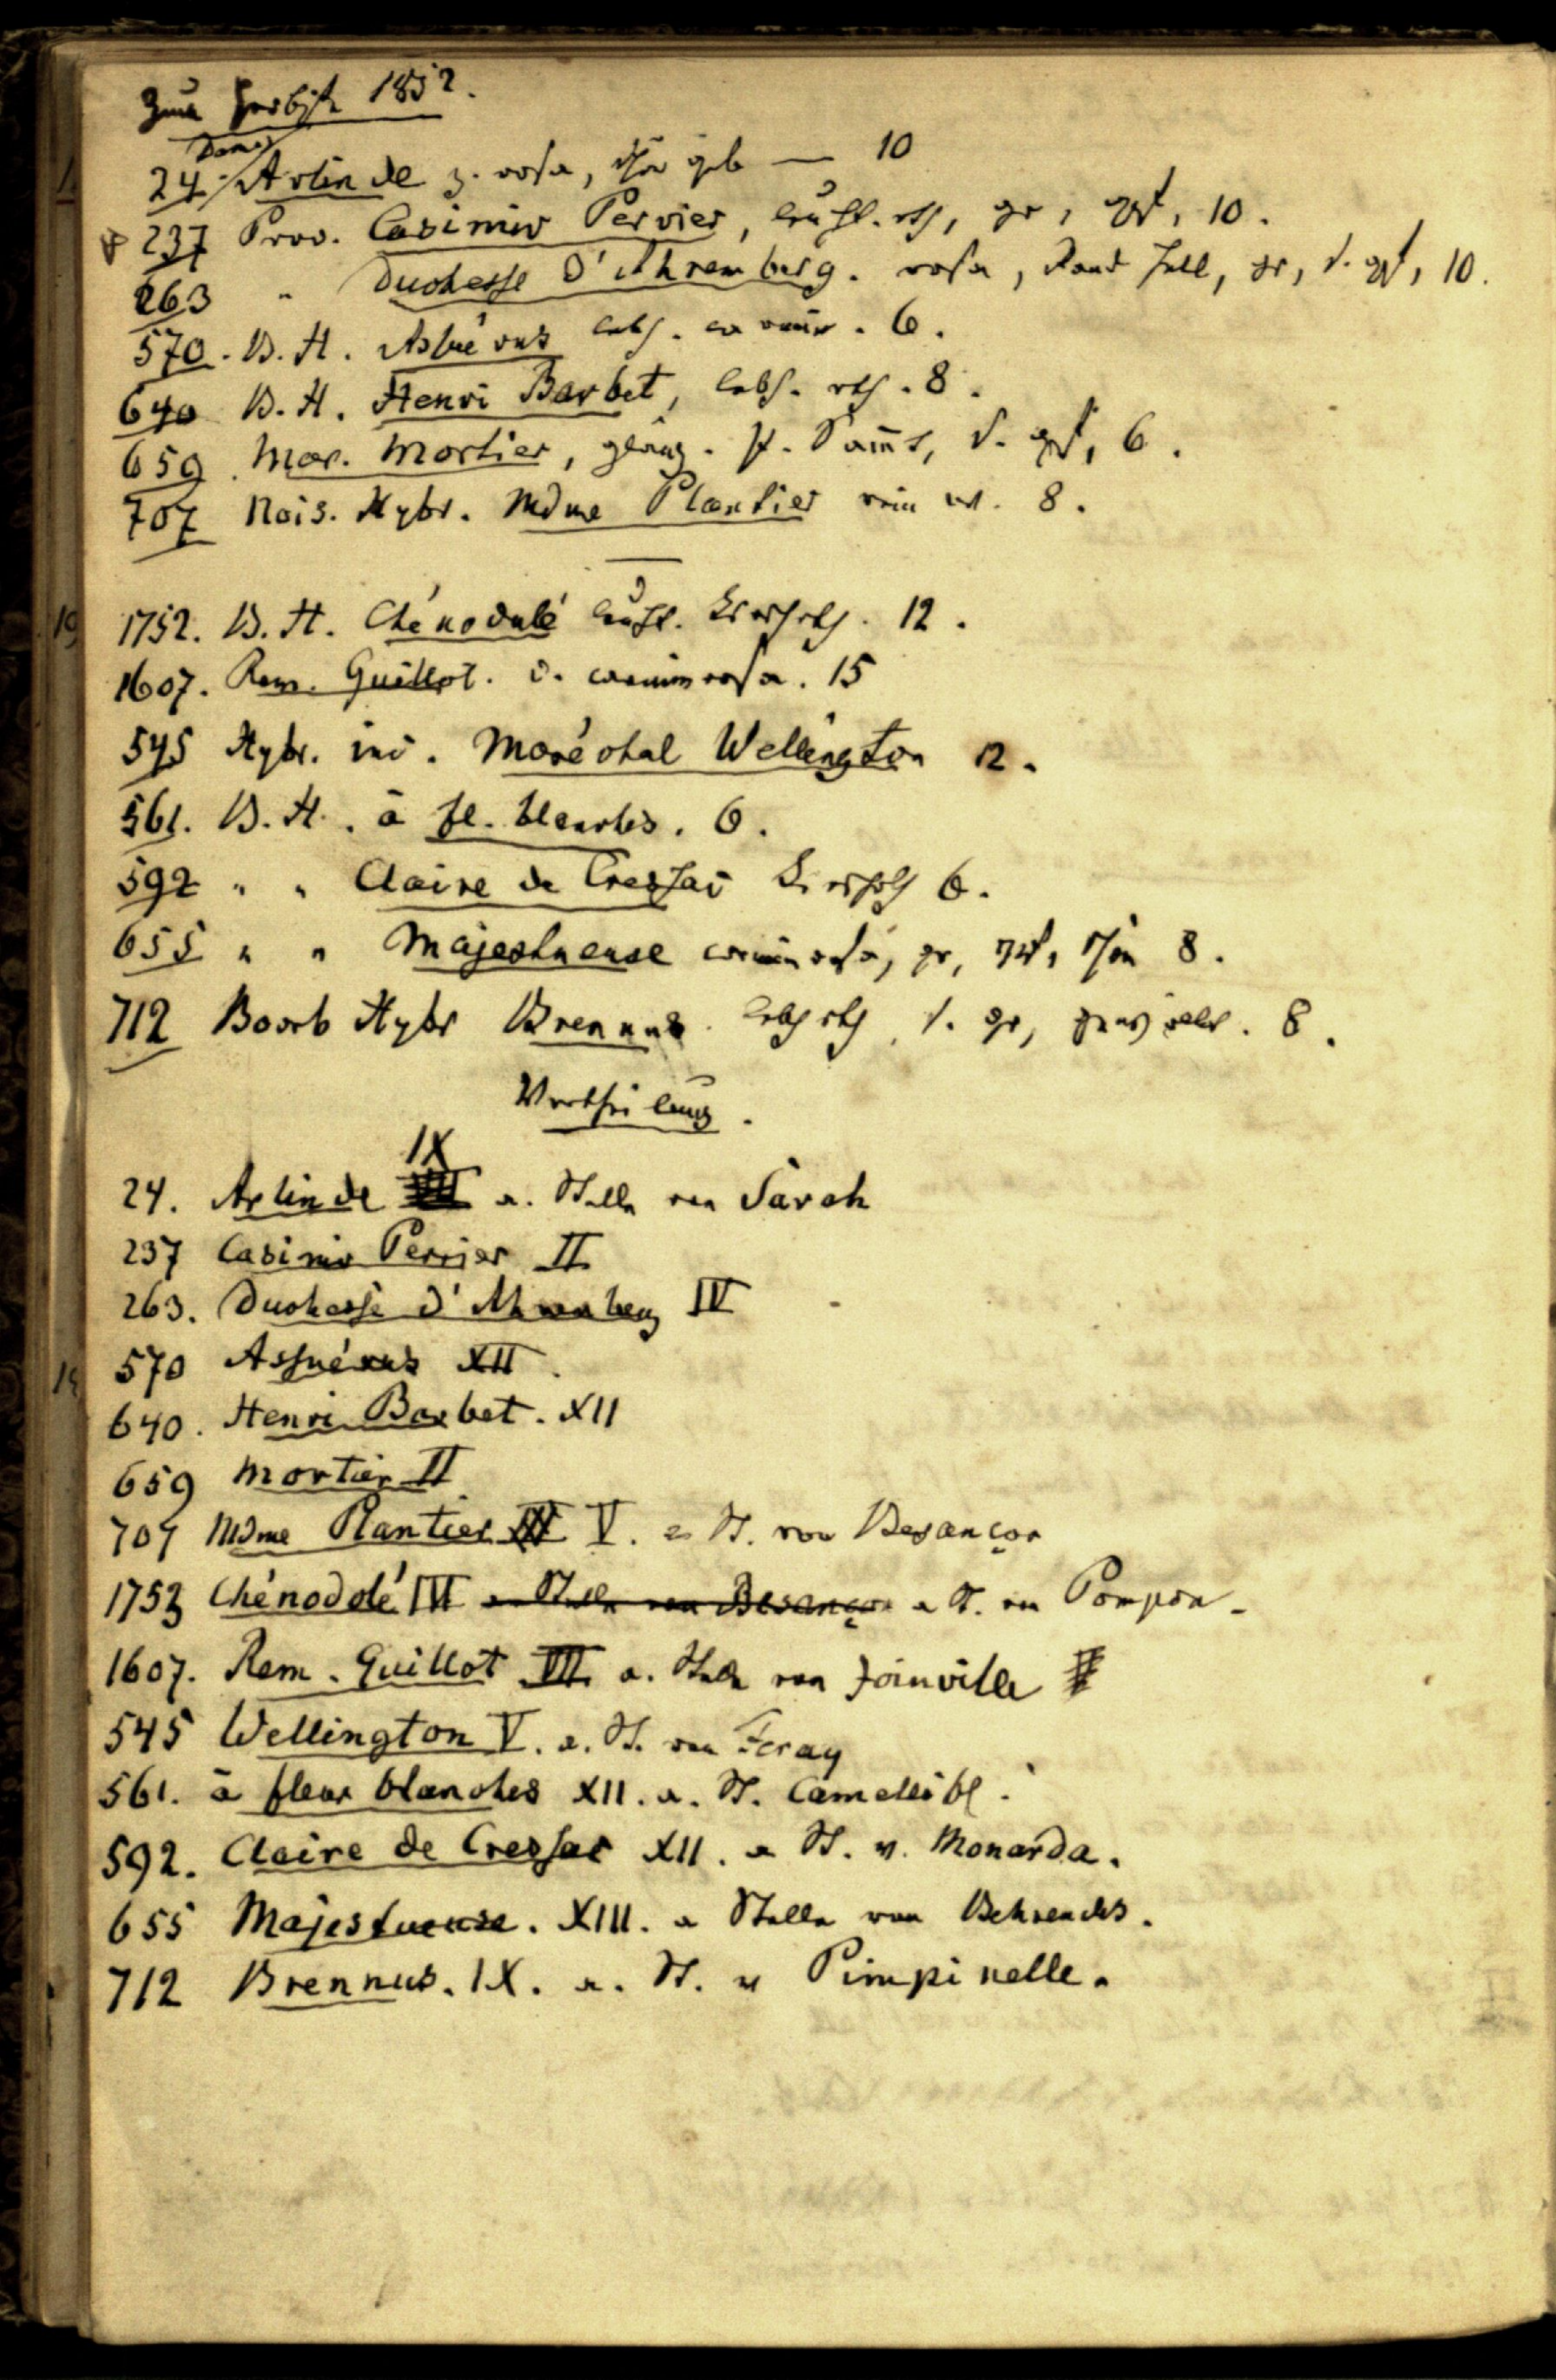 Zum Herbst 1852.
Damas
24. Arlinde z. rosa, schön geb — 10
237 Prov. Casimir Perrier, leucht. rth, gr, gef, 10.
263 " Duchesse d'Ahremberg. rosa, Rand hell, gr, s. gef, 10.
570. B. H. Asfuérus lebh. carmin. 6.
640 B. H. Henri Barbet, lebh. rth. 8.
659. Mar. Mortier, glänz. Samt, s. gef, 6.
707 Nois. Hybr. Mdme Plantier rein w. 8.
1752. B. H. Chénodolé leucht. kirschrth. 12.
1607. Rem. Guillot. d. carminrosa. 15
545 Hybr. ind. Maréchal Wellington 12.
561. B. H. à fl. blanches. 6.
592 " " Claire de Cressac 6.
655 " " Majestueuse carminrosa, gr, gef, schön 8.
712 Bourb Hybr Brennus. lebh rth, s. gr, 8.
Vertheilung.
IX
24. Arlinde a. Stelle von Sarah
237 Casimir Perrier II
263. Duchesse d'Ahremberg IV
570 Asfuérus XII.
640. Henri Barbet. XII
659 Mortier II
707 Mdme Plantier V. a. St. von Besançon
1753 Chénodolé IV a Stelle von Besançon a St. von Pompon.
1607. Rem. Guillot VII a. Stelle von Joinville
545 Wellington V. a. St. von Feray
561. à fleur blanches XII. a. St. Camellibl.
592. Claire de Cressac XII. a St. v. Monarda.
655 Majestueuse. XIII. a Stelle von Behrends.
712 Brennus. IX. a. St. v Pimpinelle.